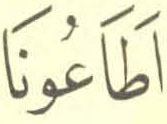 اَطَاَعُونَا